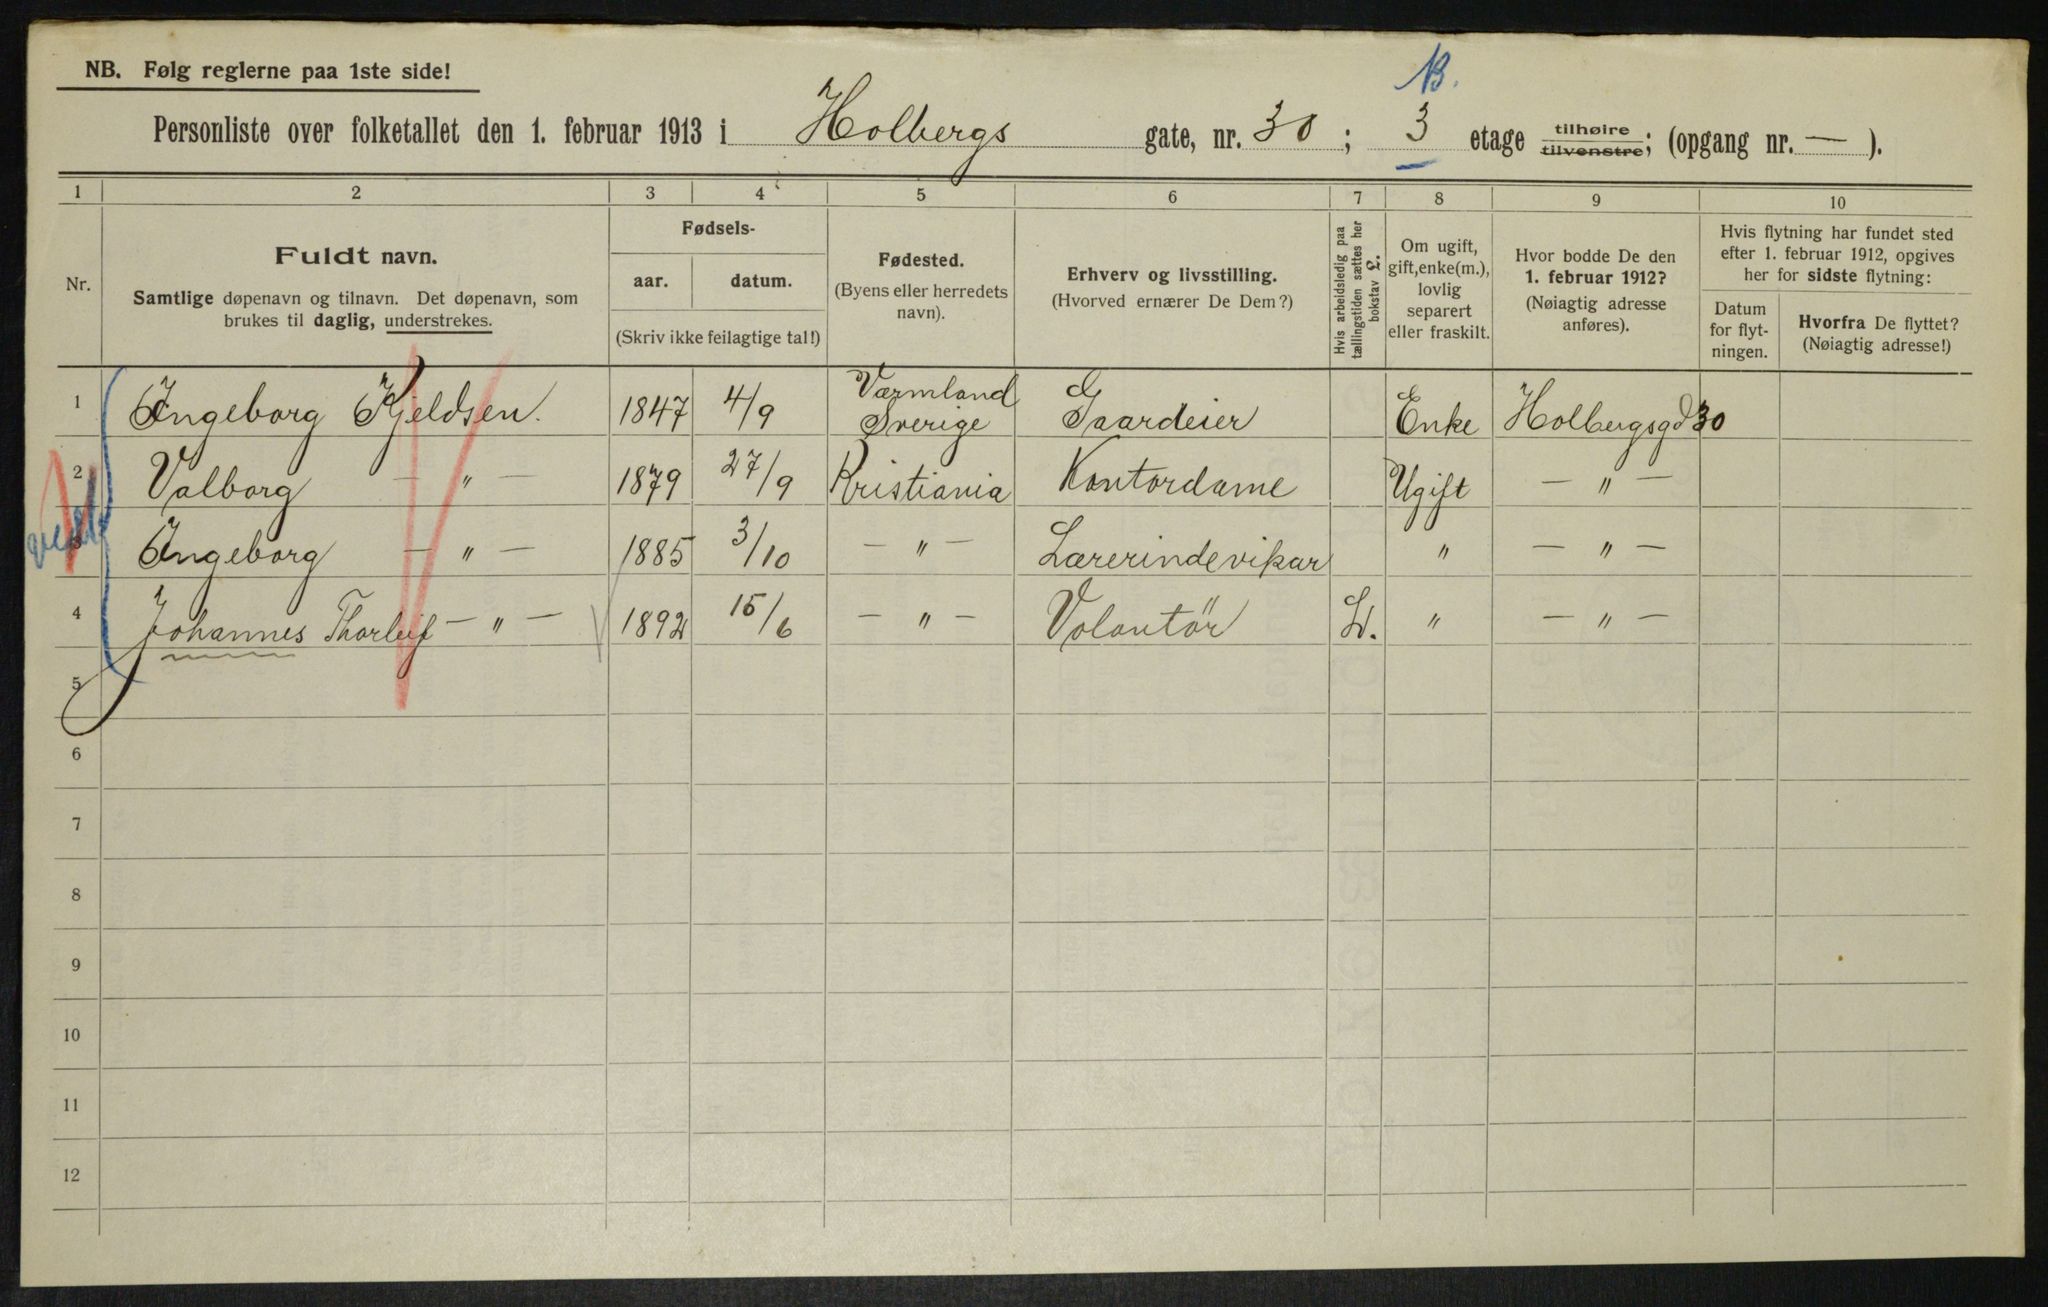 NB. Følg reglerne paa 1ste side!
Personliste over folketallet den 1. februar 1913 i Holbergs gate, nr. 30 ; 3 etage tilhøire tilvenstre; (opgang nr. — ).
1 2 3 4 5 6 7 8 9 10
Nr.
Fuldt navn.
Samtlige døpenavn og tilnavn. Det døpenavn, som
brukes til daglig, understrekes.
Fødsels-
aar. datum.
(Skriv ikke feilagtige tal!)
Fødested.
(Byens eller herredets
navn).
Erhverv og livsstilling.
(Hvorved ernærer De Dem?)
Hvis arbeidsledig paa
tællingstiden sættes her
bokstav L.
Om ugift,
gift, enke(m.),
lovlig
separert
eller fraskilt.
Hvor bodde De den
1. februar 1912?
(Nøiagtig adresse
anføres).
Hvis flytning har fundet sted
efter 1. februar 1912, opgives
her for sidste flytning:
Datum
for flyt-
ningen.
Hvorfra De flyttet?
(Nøiagtig adresse!)
1 Ingeborg Kjeldsen. 1847 4/9 Værmland Sverige Gaardeier Enke Holbergsgd 30
2 Valborg — " — 1879 27/9 Kristiania Kontordame Ugift — " —
3 Ingeborg — " — 1885 3/10 — " — Lærerindevikar " — " —
4 Johannes Thorleif — " — 1892 15/6 — " — Volontör L. " — " —
5
6
7
8
9
10
11
12